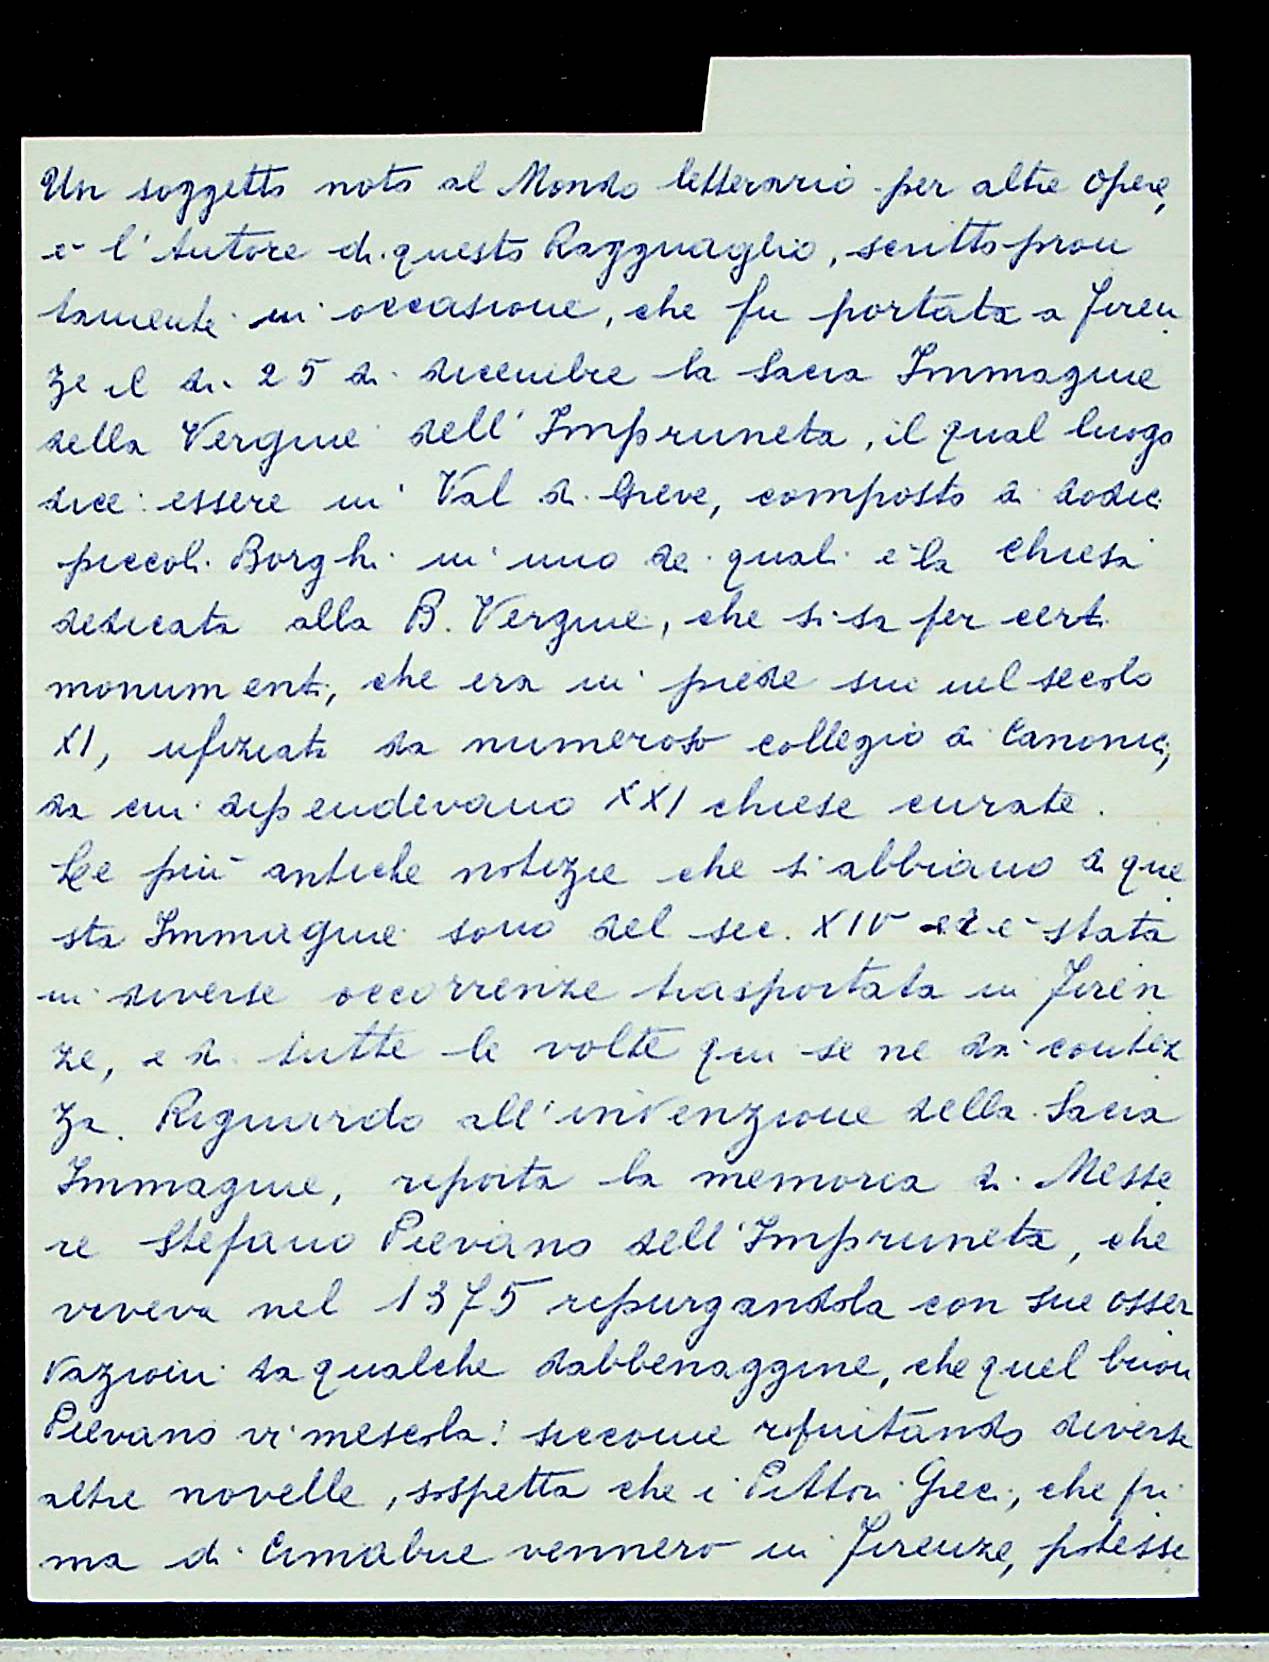 Un soggetto noto al Mondo letterario per altre opere,
è l'Autore di questo Ragguaglio, scritto pron
tamente in occasione, che fu portata a Firen
ze il dì 25 di dicembre la Sacra Immagine
della Vergine dell'Impruneta, il qual luogo
dice essere in Val di Greve, composto di dodici
piccoli Borghi in uno de quali è la chiesa
dedicata alla B. Vergine, che si sa per certi
monumenti, che era in piede sin nel secolo
XI, ufiziata da numeroso collegio di Canonici,
da cui dipendevano XXI chiese curate.
Le più antiche notizie che si abbiano di que
sta Immagine sono del sec. XIV ed è stata
in diverse occorrenze trasportata in Firen
ze, e di tutte le volte qui se ne dà contez
za. Riguardo all'invenzione della Sacra
Immagine, riporta la memoria di Messe
re Stefano Pievano dell'Impruneta, che
viveva nel 1375 repurgandola con sue osser
vazioni da qualche dabbenaggine, che quel buon
Pievano vi mescola: siccome rifiutando diverse
altre novelle, sospetta che i Pittori Greci, che pri
ma di Cimabue vennero in Firenze, potesse